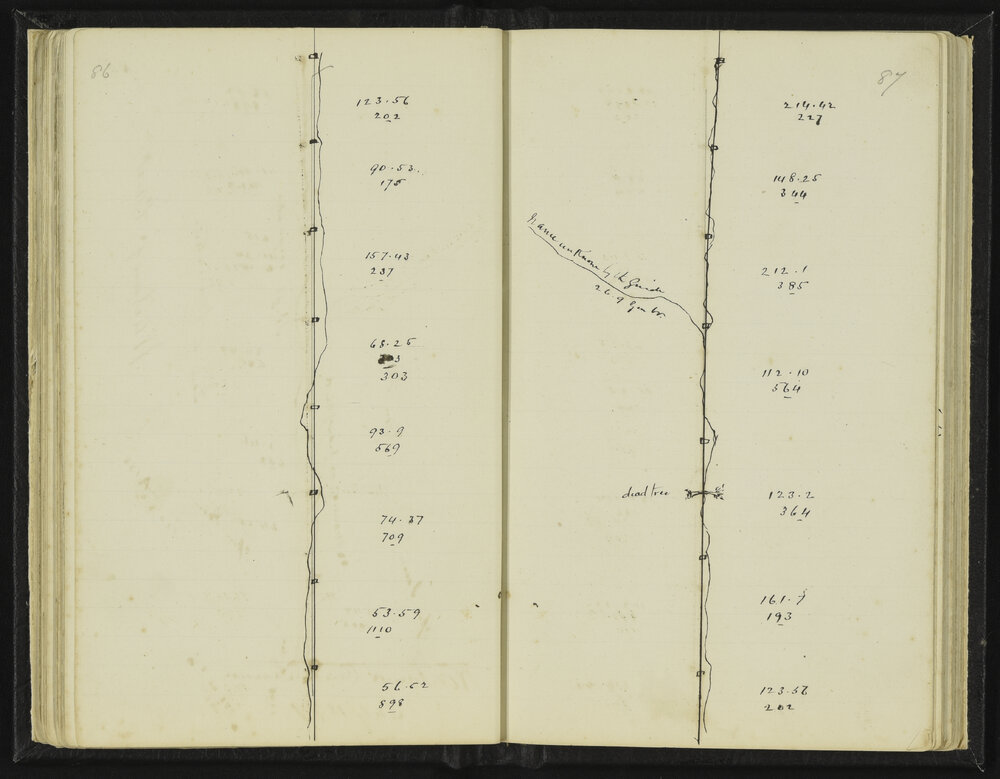 86
123.56
202
90.53.
175
157.43
237
68.25
303
93.9
569
74.37
709
53.59
1110
56.52
898
87
214.42
227
148.25
344
212.1
385
name unknown by the Guide
112.10
564
dead tree
123.2
364
161.7
193
123.56
202